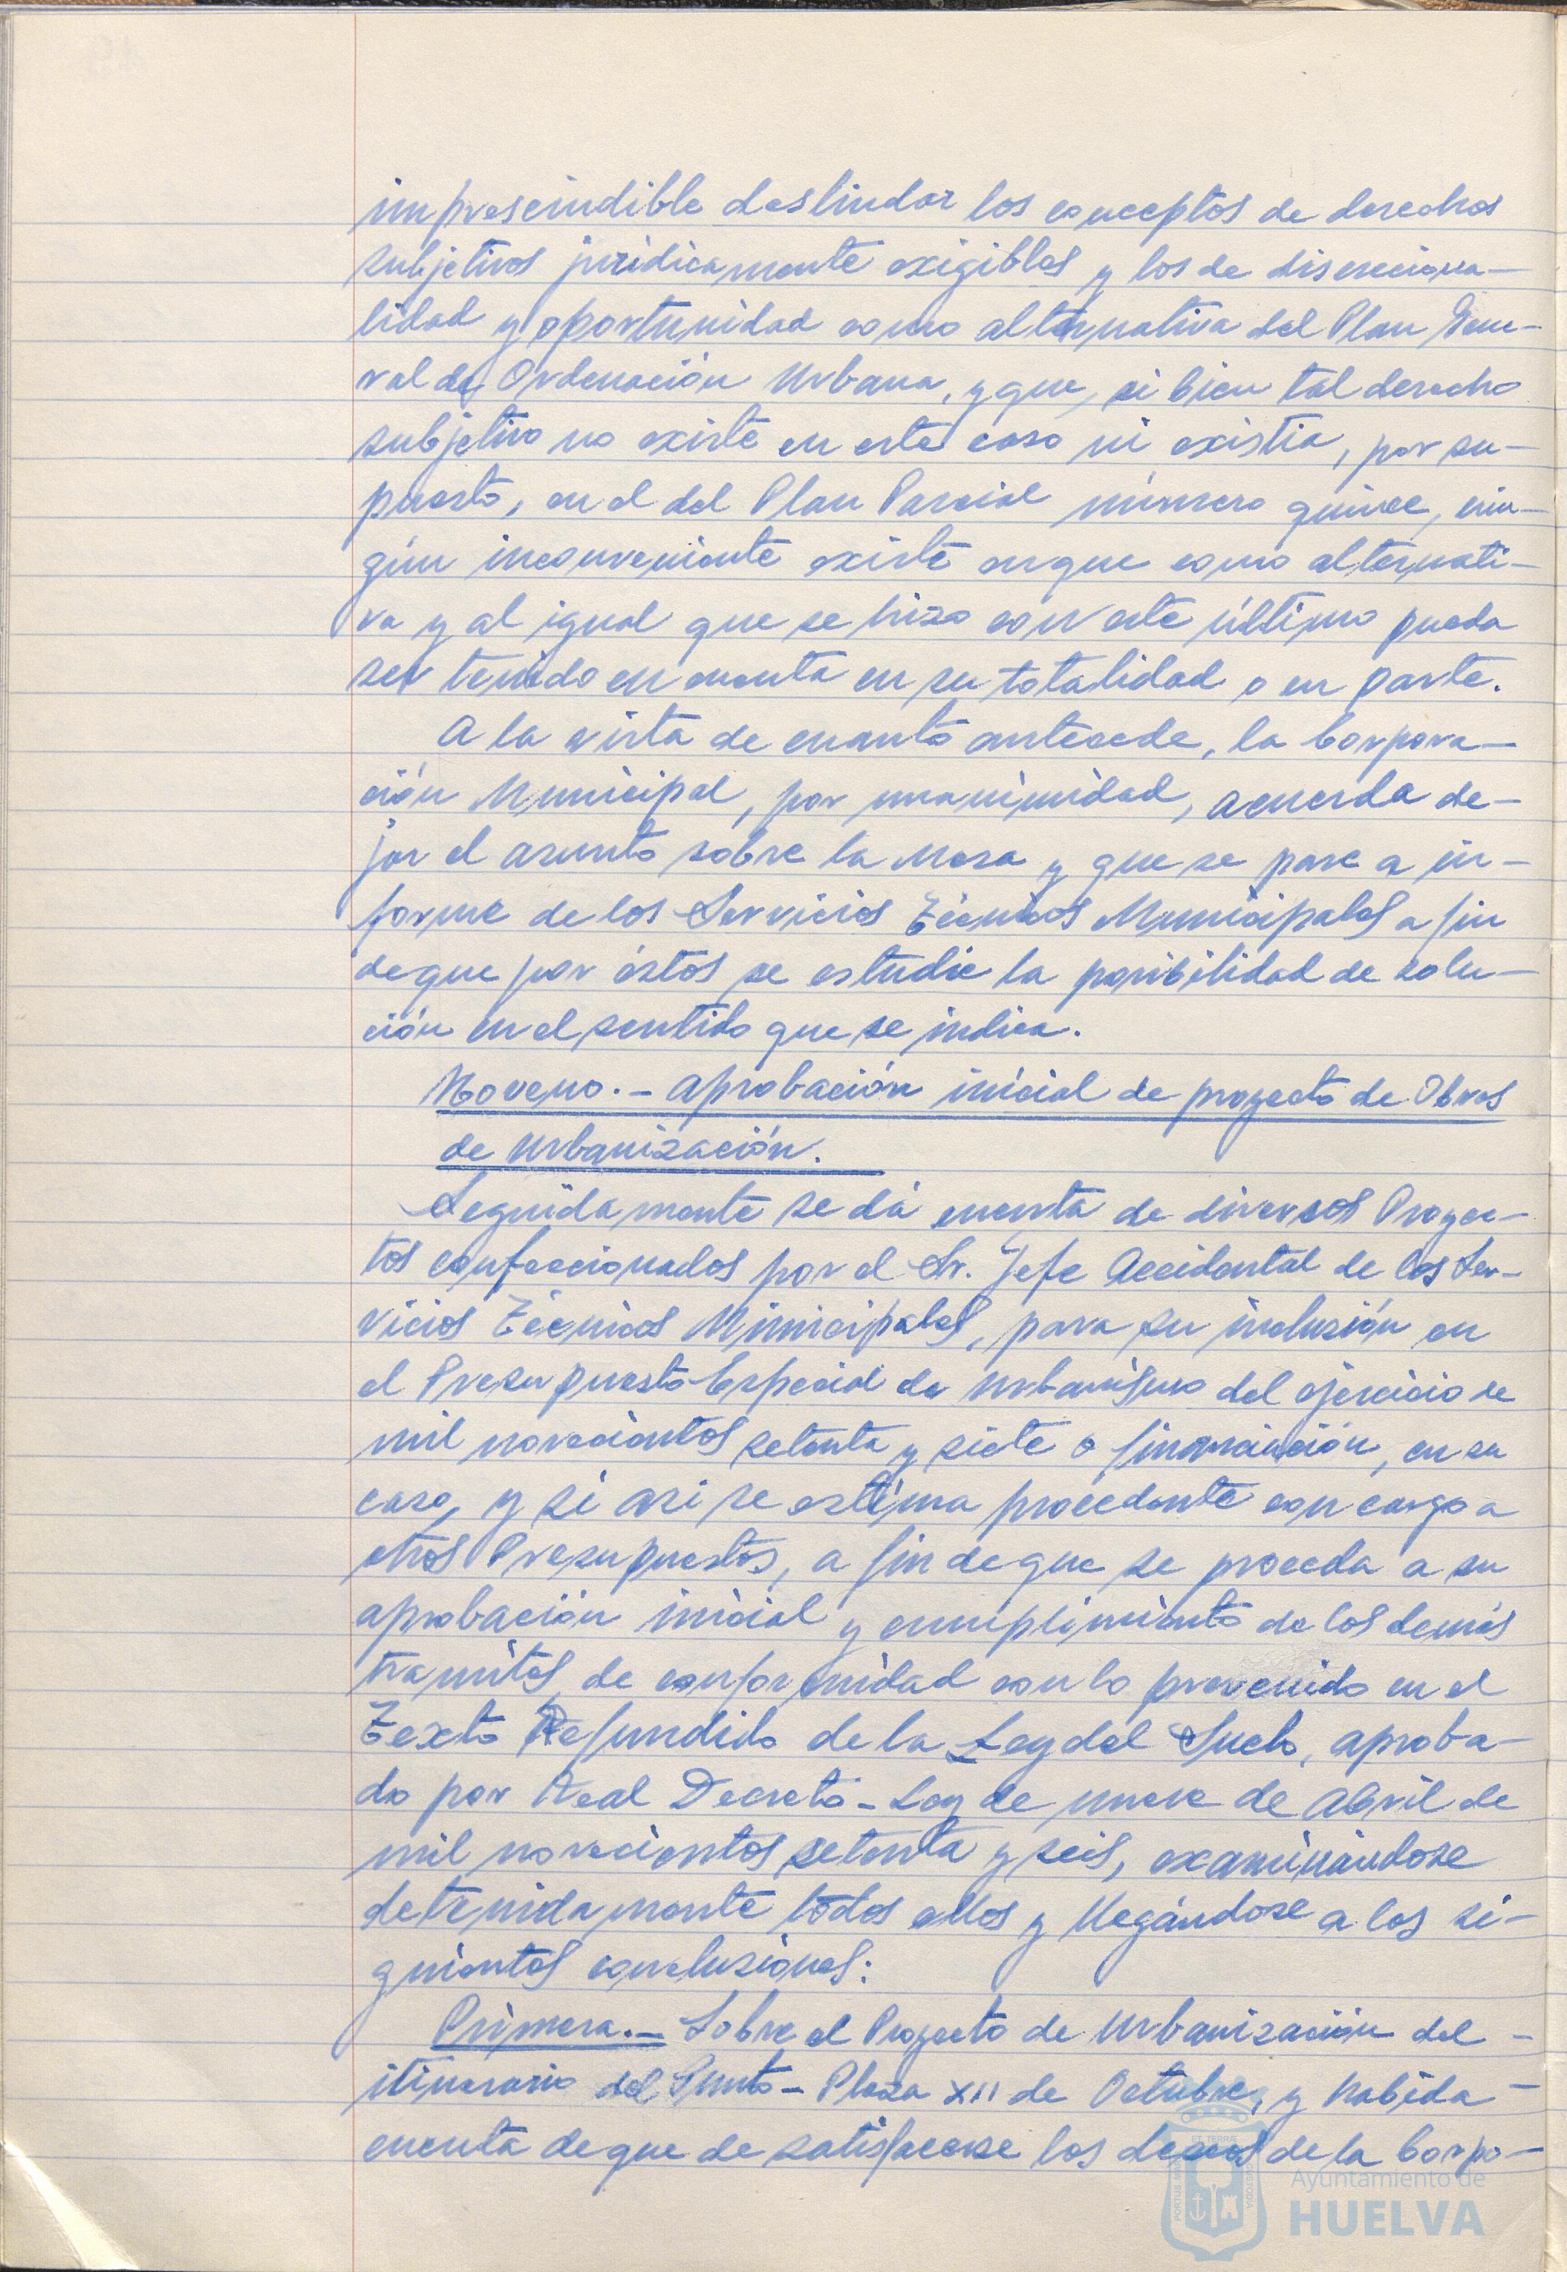 imprescindible deslindar los conceptos de derechos
subjetivos jurídicamente exigibles y los de disereciona-
lidad y oportunidad como alternativa del Plan Gene-
ral de Ordenación Urbana, y que, si bien tal derecho
subjetivo no existe en este caso ni existía, por su-
puesto, en el del Plan Parcial número quince, nin-
gún inconveniente existe en que como alternati-
va y al igual que se hizo con este último pueda
ser tenido en cuenta en su totalidad o en parte.
A la vista de cuanto antecede, la Corpora-
ción Municipal, por unanimidad, acuerda de-
jar el asunto sobre la Mesa y que se pase a in-
forme de los Servicios Técnicos Municipales a fin
de que por éstos se estudie la posibilidad de solu-
ción en el sentido que se indica.
Noveno.- Aprobación inicial de proyecto de Obras
de Urbanización.
Seguidamente se dá cuenta de diversos Proyec-
tos confeccionados por el Sr. Jefe Accidental de los Ser-
vicios Técnicos Municipales, para su inclusión en
el Presupuesto Especial de Urbanismo del ejercicio de
mil novecientos setenta y siete o financiación, en su
caso, y si asi se estima procedente con cargo a
otros Presupuestos, a fin de que se proceda a su
aprobación inicial y cumplimiento de los demás
tramites de conformidad con lo prevenido en el
Texto Refundido de la Ley del Suelo, aproba-
do por Real Decreto-Ley de nueve de Abril de
mil novecientos setenta y seis, examinándose
detenidamente todos ellos y llegándose a las si-
guientes conclusiones:
Primera.- Sobre el Proyecto de Urbanización del -
itinerario del Punto - Plaza XII de Octubre, y habida -
cuenta de que de satisfacerse los deseos de la Corpo-
ET TERRAE
PORTUS MARIS
CUSTODIA
Ayuntamiento de
HUELVA